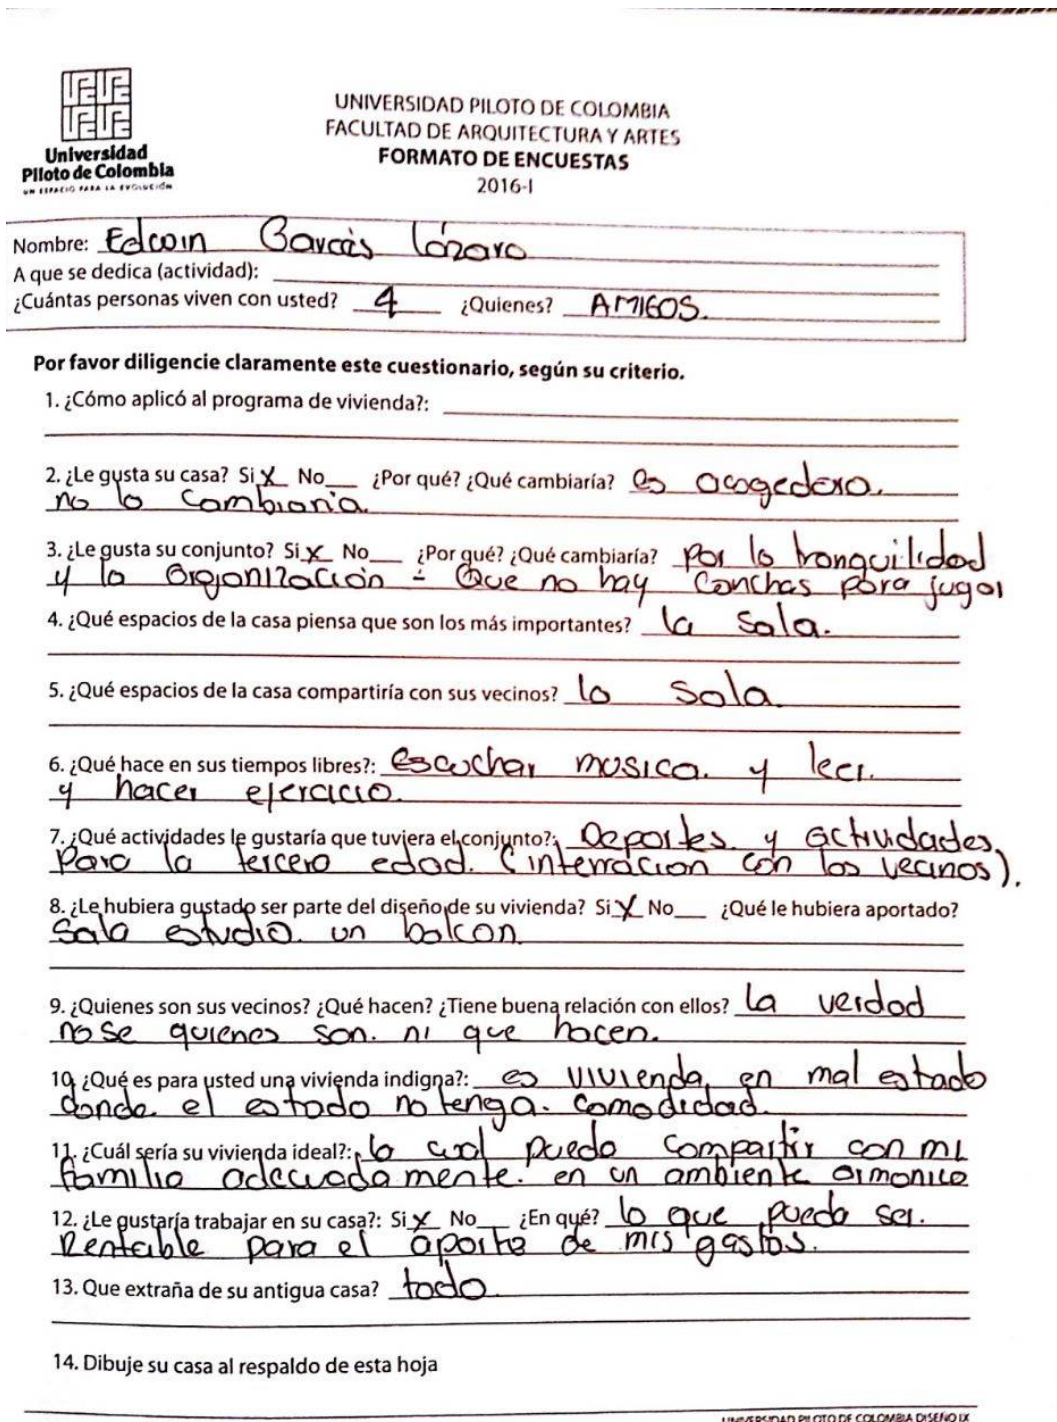 Universidad
Piloto de Colombia
UN ESPACIO PARA LA EVOLUCIÓN
UNIVERSIDAD PILOTO DE COLOMBIA
FACULTAD DE ARQUITECTURA Y ARTES
FORMATO DE ENCUESTAS
2016-I
Nombre: Edwin Garcés Lózaro
A que se dedica (actividad):
¿Cuántas personas viven con usted? 4 ¿Quienes? AMIGOS.
Por favor diligencie claramente este cuestionario, según su criterio.
1. ¿Cómo aplicó al programa de vivienda?:
2. ¿Le gusta su casa? Si X No__ ¿Por qué? ¿Qué cambiaría? es acogedora.
no lo cambiaria.
3. ¿Le gusta su conjunto? Si X No__ ¿Por qué? ¿Qué cambiaría? Por la tranquilidad
y la Organización - Que no hay Conchas para jugar
4. ¿Qué espacios de la casa piensa que son los más importantes? la Sala.
5. ¿Qué espacios de la casa compartiría con sus vecinos? la Sala.
6. ¿Qué hace en sus tiempos libres?: escuchar musica. y leer.
y hacer ejercicio.
7. ¿Qué actividades le gustaría que tuviera el conjunto?: Deportes y actividades,
para la tercera edad. (interracion con los vecinos).
8. ¿Le hubiera gustado ser parte del diseño de su vivienda? Si X No__ ¿Qué le hubiera aportado?
Sala estudio. un balcon.
9. ¿Quienes son sus vecinos? ¿Qué hacen? ¿Tiene buena relación con ellos? la verdad
no se quienes son. ni que hacen.
10. ¿Qué es para usted una vivienda indigna?: es vivienda, en mal estado
donde el estado no tenga. comodidad.
11. ¿Cuál sería su vivienda ideal?: la cual pueda compartir con mi
familia adecuadamente. en un ambiente armonico
12. ¿Le gustaría trabajar en su casa?: Si X No__ ¿En qué? lo que pueda ser.
Rentable para el aporte de mis gastos.
13. Que extraña de su antigua casa? todo.
14. Dibuje su casa al respaldo de esta hoja
UNIVERSIDAD PILOTO DE COLOMBIA DISEÑO IX